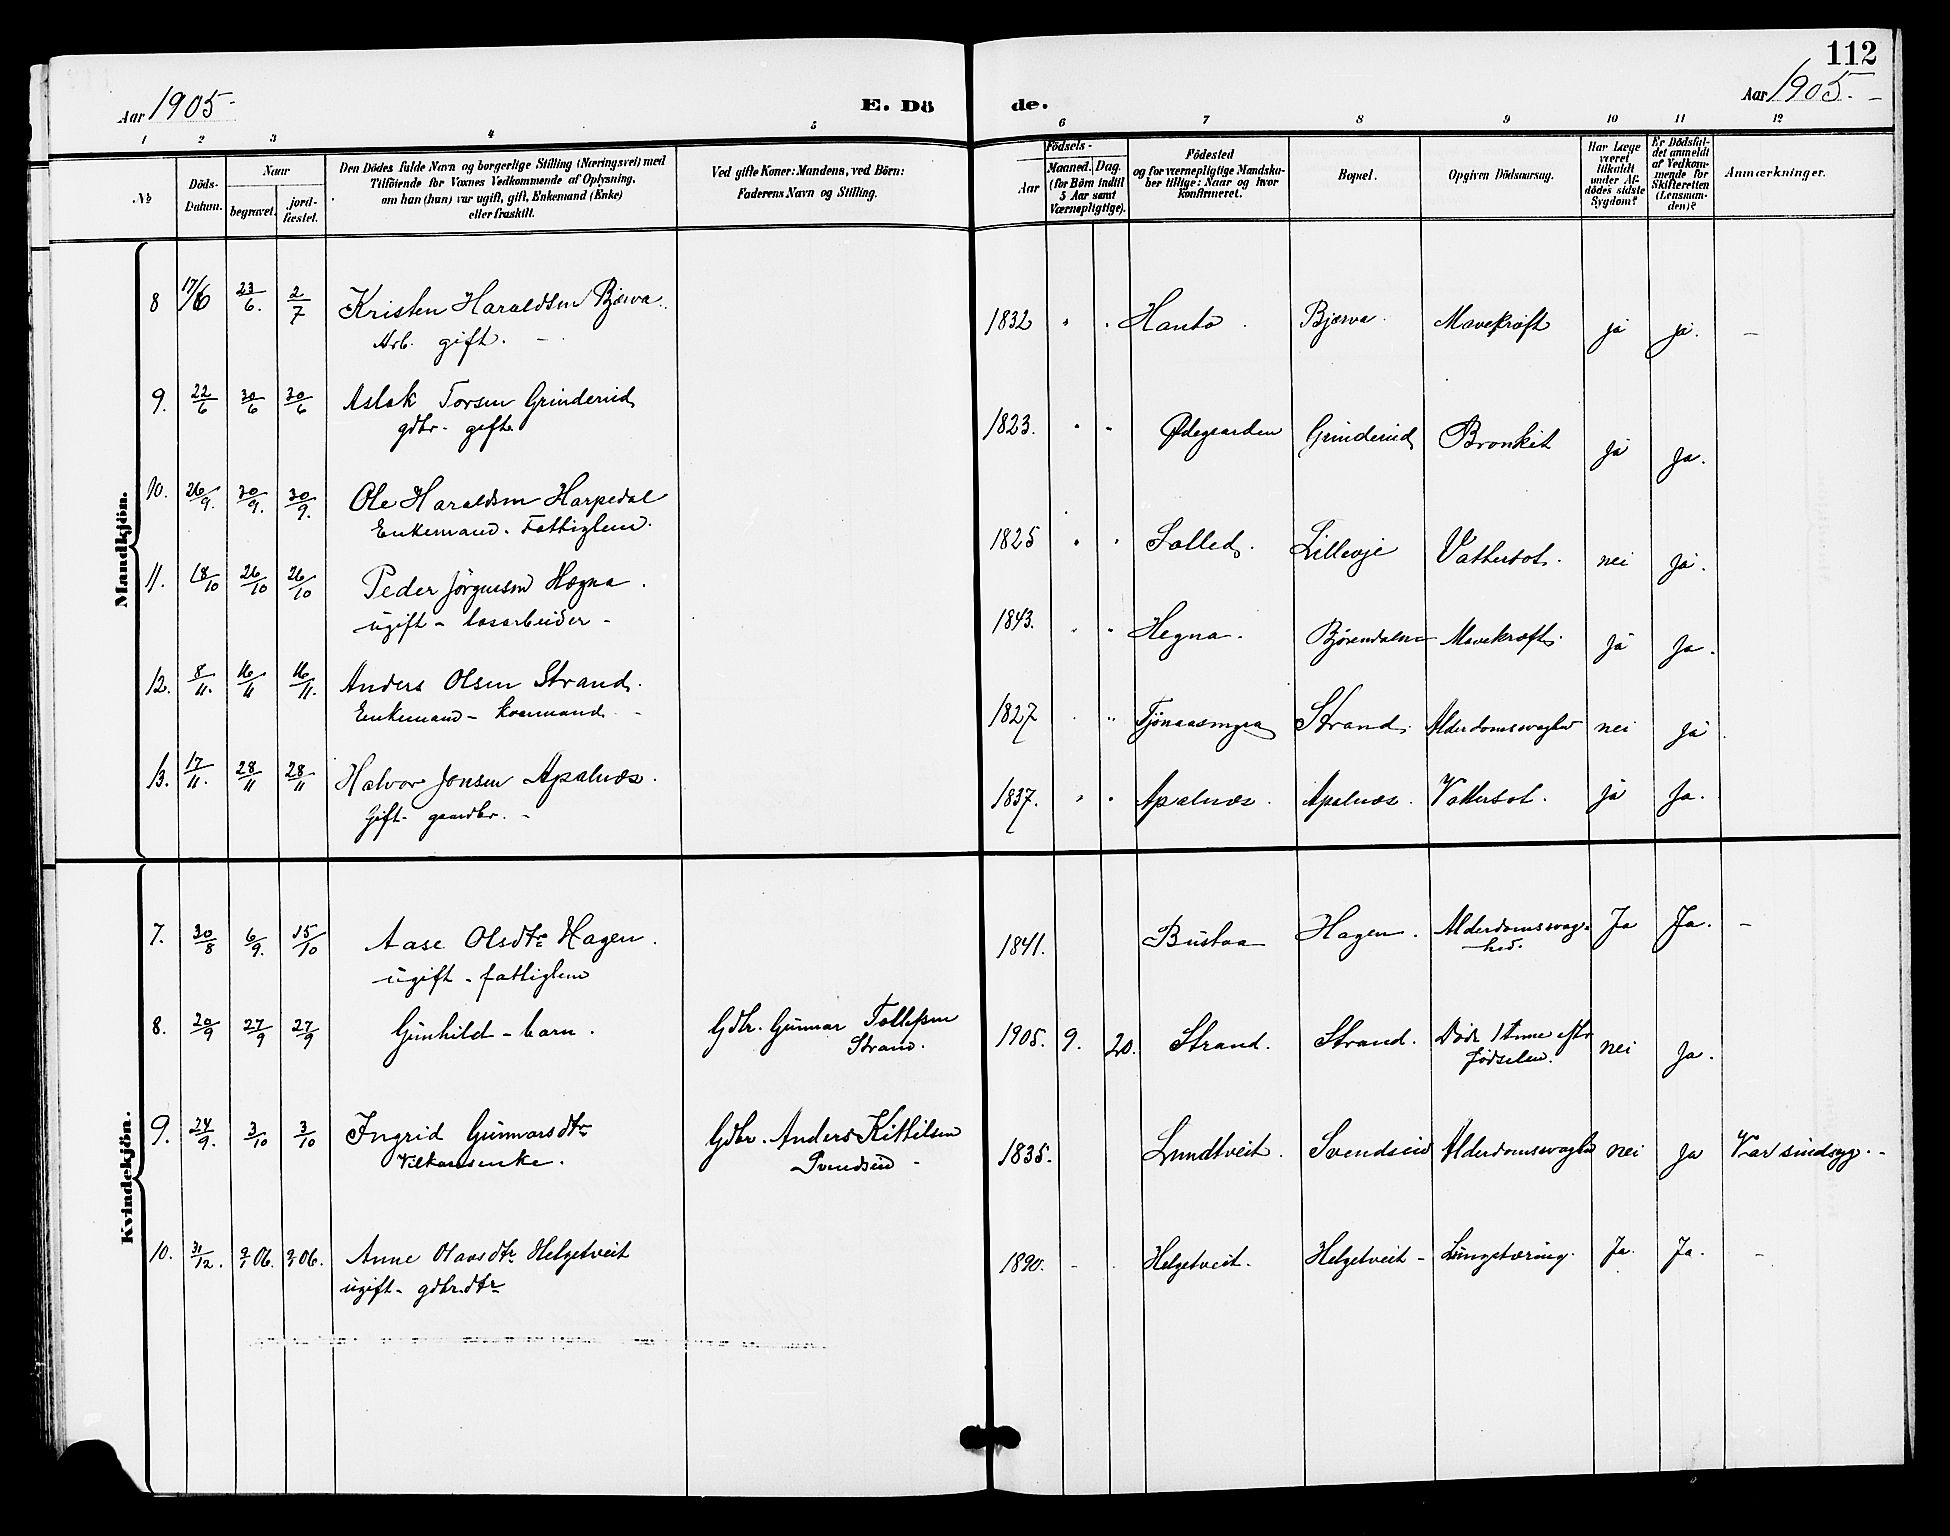 112
Aar 1905.
E. Dö de.
Aar 1905.
1 2 3 4 5 6 7 8 9 10 11 12
№
Döds-Datum.
Naar
begravet.
jord-fæstet.
Den Dödes fulde Navn og borgerlige Stilling (Næringsvei) med
Tilföiende for Voxnes Vedkommende af Oplysning,
om han (hun) var ugift, gift, Enkemand (Enke)
eller fraskilt.
Ved gifte Koner: Mandens, ved Börn:
Faderens Navn og Stilling.
Födsels-
Aar
Maaned. Dag.
(for Börn indtil
5 Aar samt
Værnepligtige).
Födested
og for værnepligtige Mandska-
ber tillige: Naar og hvor
konfirmeret.
Bopæl.
Opgiven Dödsaarsag.
Har Læge
været
tilkaldt
under Af-
dödes sidste
Sygdom?
Er Dödsfal-
det anmeldt
af Vedkom-
mende for
Skifteretten
(Lensman-
den)?
Anmærkninger.
Mandkjön.
8 17/6 23/6. 2/7 Kristen Haraldsen Bjærva. 1832 " " Hantø. Bjærva. Mavekræft ja ja. —
Arb. gift. —
9. 22/6 30/6 30/6 Aslak Torsen Grinderud 1823. " " Ødegaarden Grinderud Bronkit ja Ja.
gdbr. gift.
10. 26/9. 30/9. 30/9. Ole Haraldsen Harpedal 1825 " " Solled. Lillevje Vattersot. nei ja.
Enkemand. Fattiglem.
11. 18/10 26/10 26/10 Peder Jørgensen Hægna. 1843. " " Hegna. Bjørendalen Mavekræft. ja Ja.
ugift - løsarbeider -
12. 8/11. 16/11 16/11. Anders Olsen Strand. 1827 " " Tjönaasmyra Strand. Alderdomssvaghed nei ja.
Enkemand - kaarmand. -
13. 17/11. 28/11 28/11 Halvor Jensen Apalnæs. 1837. " " Apalnæs. Apalnæs. Vattersot. ja Ja.
Gift. gaardbr. -
Kvindekjön.
7. 30/8 6/9. 15/10 Aase Olsdtr Hagen. 1841. Bustaa Hagen. Alderdomssvag-
hed. Ja Ja. —
ugift - fattiglem
8. 20/9 27/9 27/9 Gunhild - barn. Gdbr. Gunnar Tollefsen
Strand. 1905. 9. 20. Strand. Strand. Död 1 time eftr
fødselen. nei Ja.
9. 24/9. 3/10 3/10 Ingrid Gunnarsdtr Gdbr. Anders Kittilsen
Svendseid - 1835. Lundtveit. Svendseid Alderdomssvaghed nei Ja Var sindsyg. -
Vilkarsenke.
10. 31/12. 9/1 06. 9/1 06. Anne Olavsdtr Helgetveit 1890. - . Helgetveit. Helgetveit - Lungetæring. Ja. Ja. —
ugift - gdbr.dtr